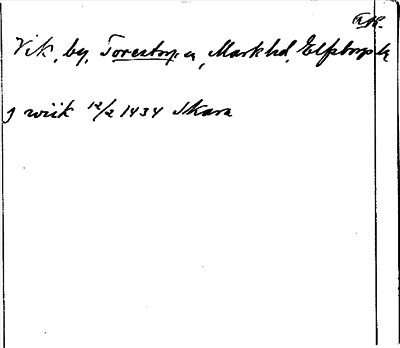 Vik, by, Torestorp sn, Markhd, Elfsborgs l.
J wiik 12/2 1434 Skara